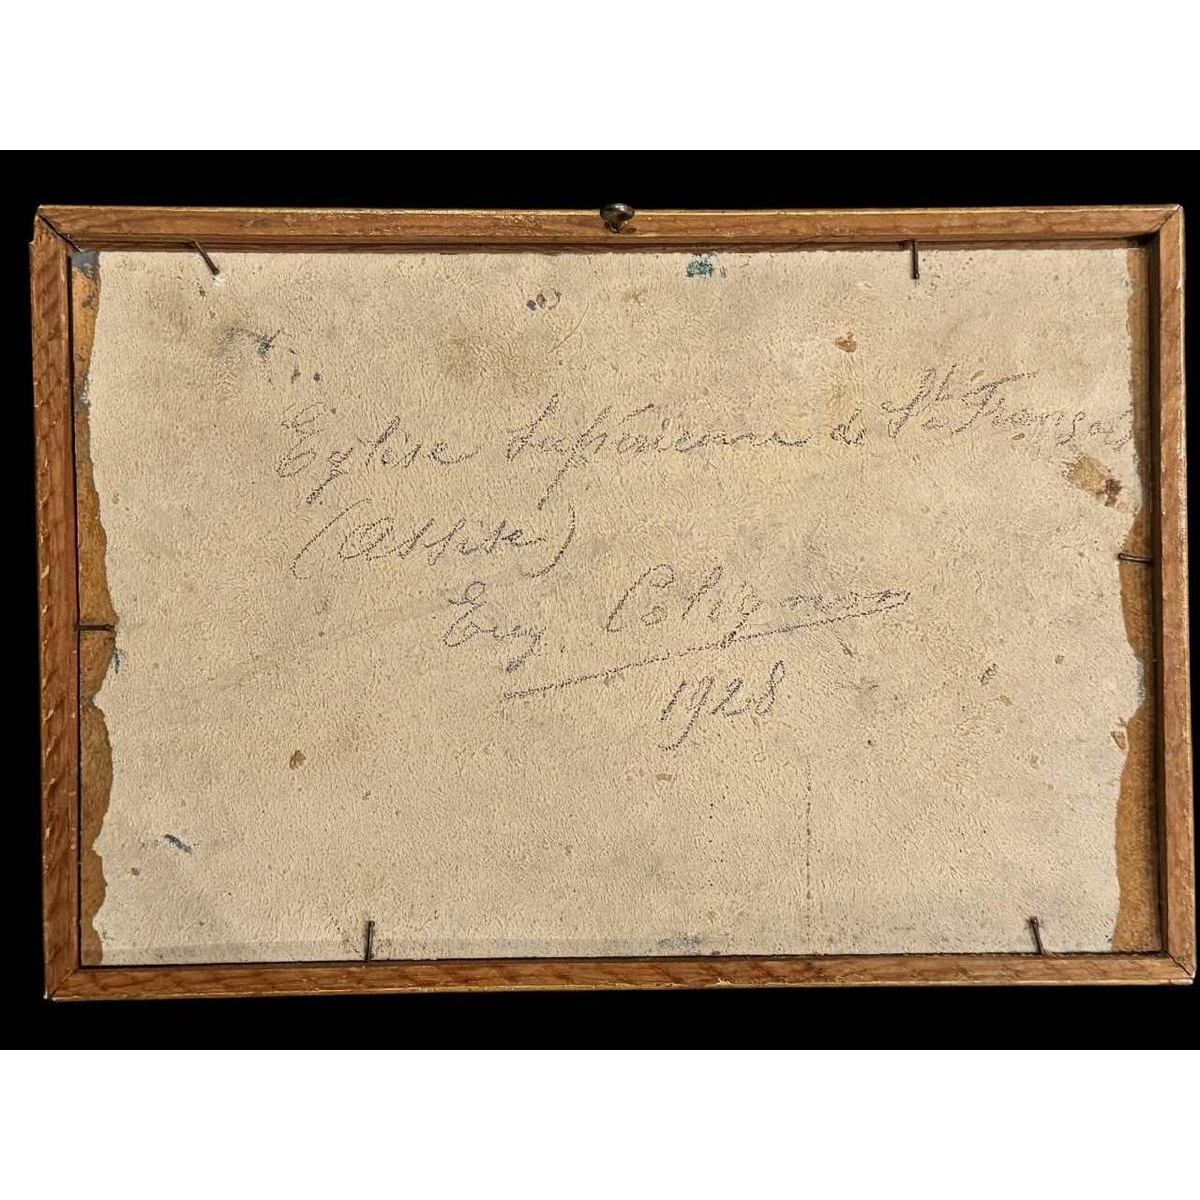 Eglise Supérieure de St François
(Assise)
Eug Colignon
1928